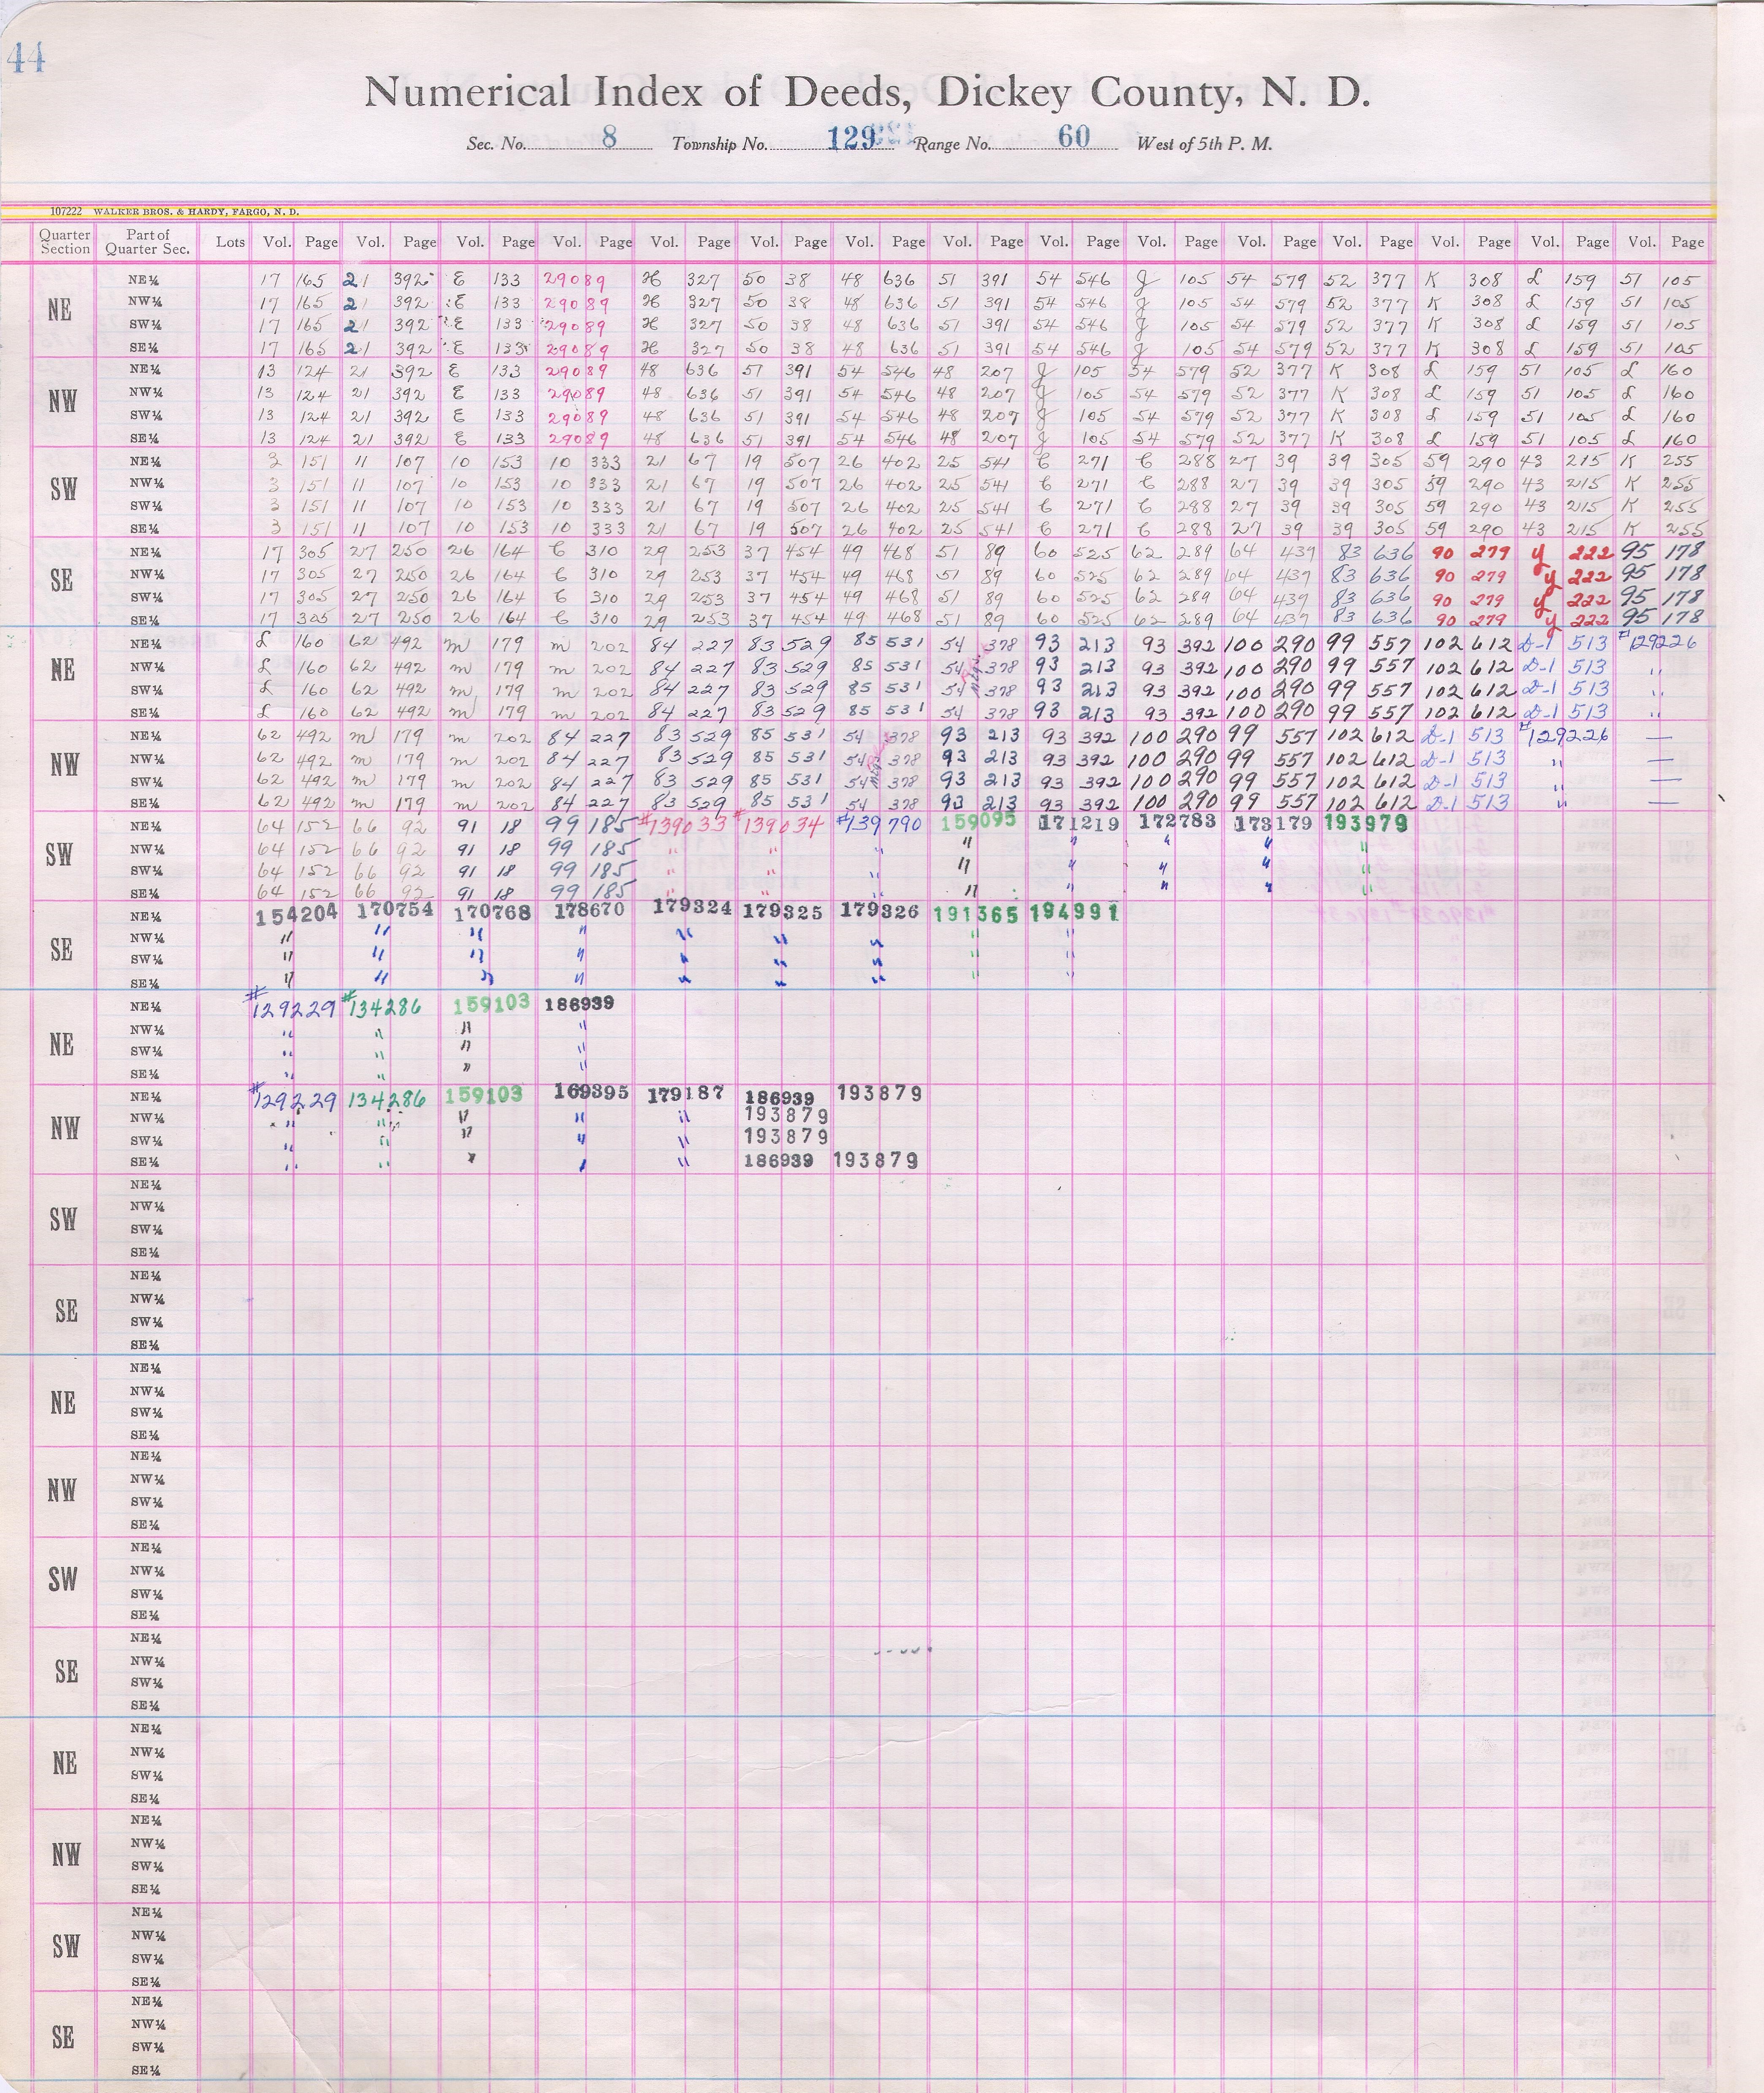 44
Numerical Index of Deeds, Dickey County, N. D.
Sec. No. 8 Township No. 129 Range No. 60 West of 5th P. M.
107222 WALKER BROS. & HARDY, FARGO, N. D.
Quarter Section Part of Quarter Sec. Lots Vol. Page Vol. Page Vol. Page Vol. Page Vol. Page Vol. Page Vol. Page Vol. Page Vol. Page Vol. Page Vol. Page Vol. Page Vol. Page Vol. Page Vol. Page
NE
NE¼ 17 165 21 392 E 133 29089 H 327 50 38 48 636 51 391 54 546 J 105 54 579 52 377 K 308 L 159 51 105
NW¼ 17 165 21 392 E 133 29089 H 327 50 38 48 636 51 391 54 546 J 105 54 579 52 377 K 308 L 159 51 105
SW¼ 17 165 21 392 E 133 29089 H 327 50 38 48 636 51 391 54 546 J 105 54 579 52 377 K 308 L 159 51 105
SE¼ 17 165 21 392 E 133 29089 H 327 50 38 48 636 51 391 54 546 J 105 54 579 52 377 K 308 L 159 51 105
NW
NE¼ 13 124 21 392 E 133 29089 48 636 51 391 54 546 48 207 J 105 54 579 52 377 K 308 L 159 51 105 L 160
NW¼ 13 124 21 392 E 133 29089 48 636 51 391 54 546 48 207 J 105 54 579 52 377 K 308 L 159 51 105 L 160
SW¼ 13 124 21 392 E 133 29089 48 636 51 391 54 546 48 207 J 105 54 579 52 377 K 308 L 159 51 105 L 160
SE¼ 13 124 21 392 E 133 29089 48 636 51 391 54 546 48 207 J 105 54 579 52 377 K 308 L 159 51 105 L 160
SW
NE¼ 3 151 11 107 10 153 10 333 21 67 19 507 26 402 25 541 C 271 C 288 27 39 39 305 59 290 43 215 K 255
NW¼ 3 151 11 107 10 153 10 333 21 67 19 507 26 402 25 541 C 271 C 288 27 39 39 305 59 290 43 215 K 255
SW¼ 3 151 11 107 10 153 10 333 21 67 19 507 26 402 25 541 C 271 C 288 27 39 39 305 59 290 43 215 K 255
SE¼ 3 151 11 107 10 153 10 333 21 67 19 507 26 402 25 541 C 271 C 288 27 39 39 305 59 290 43 215 K 255
SE
NE¼ 17 305 27 250 26 164 C 310 29 253 37 454 49 468 51 89 60 525 62 289 64 439 83 636 90 279 Y 222 95 178
NW¼ 17 305 27 250 26 164 C 310 29 253 37 454 49 468 51 89 60 525 62 289 64 439 83 636 90 279 Y 222 95 178
SW¼ 17 305 27 250 26 164 C 310 29 253 37 454 49 468 51 89 60 525 62 289 64 439 83 636 90 279 Y 222 95 178
SE¼ 17 305 27 250 26 164 C 310 29 253 37 454 49 468 51 89 60 525 62 289 64 439 83 636 90 279 Y 222 95 178
NE
NE¼ L 160 62 492 m 179 m 202 84 227 83 529 85 531 54 378 93 213 93 392 100 290 99 557 102 612 D-1 513 #129226
NW¼ L 160 62 492 m 179 m 202 84 227 83 529 85 531 54 378 93 213 93 392 100 290 99 557 102 612 D-1 513 "
SW¼ L 160 62 492 m 179 m 202 84 227 83 529 85 531 54 378 93 213 93 392 100 290 99 557 102 612 D-1 513 "
SE¼ L 160 62 492 m 179 m 202 84 227 83 529 85 531 54 378 93 213 93 392 100 290 99 557 102 612 D-1 513 "
NW
NE¼ 62 492 m 179 m 202 84 227 83 529 85 531 54 378 93 213 93 392 100 290 99 557 102 612 D-1 513 #129226 —
NW¼ 62 492 m 179 m 202 84 227 83 529 85 531 54 378 93 213 93 392 100 290 99 557 102 612 D-1 513 " —
SW¼ 62 492 m 179 m 202 84 227 83 529 85 531 54 378 93 213 93 392 100 290 99 557 102 612 D-1 513 " —
SE¼ 62 492 m 179 m 202 84 227 83 529 85 531 54 378 93 213 93 392 100 290 99 557 102 612 D-1 513 " —
SW
NE¼ 64 152 66 92 91 18 99 185 #139033 #139034 #139790 159095 171219 172783 173179 193979
NW¼ 64 152 66 92 91 18 99 185 " " " " " " " "
SW¼ 64 152 66 92 91 18 99 185 " " " " " " " "
SE¼ 64 152 66 92 91 18 99 185 " " " " " " " "
SE
NE¼ 154204 170754 170768 178670 179324 179325 179326 191365 194991
NW¼ " " " " " " " " "
SW¼ " " " " " " " " "
SE¼ " " " " " " " " "
NE
NE¼ #129229 #134286 159103 186939
NW¼ " " " "
SW¼ " " " "
SE¼ " " " "
NW
NE¼ #129229 134286 159103 169395 179187 186939 193879
NW¼ " " " " " 193879
SW¼ " " " " " 193879
SE¼ " " " " " 186939 193879
SW
NE¼
NW¼
SW¼
SE¼
SE
NE¼
NW¼
SW¼
SE¼
NE
NE¼
NW¼
SW¼
SE¼
NW
NE¼
NW¼
SW¼
SE¼
SW
NE¼
NW¼
SW¼
SE¼
SE
NE¼
NW¼
SW¼
SE¼
NE
NE¼
NW¼
SW¼
SE¼
NW
NE¼
NW¼
SW¼
SE¼
SW
NE¼
NW¼
SW¼
SE¼
SE
NE¼
NW¼
SW¼
SE¼